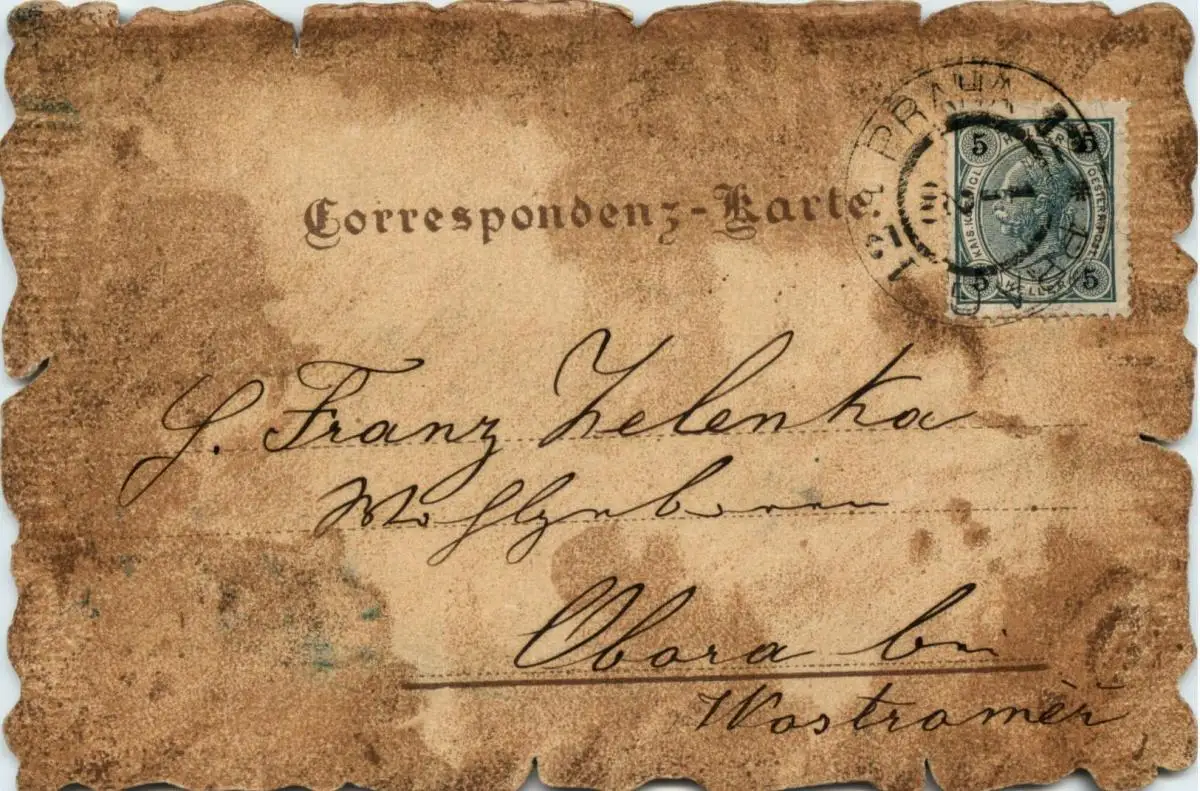 Correspondenz-Karte.
PRAHA
5 HELLER 5
KAIS. KÖNIGL.
OESTERR. POST
5 HELLER 5
Franz Zelenka
Obora bei
Wostroměř